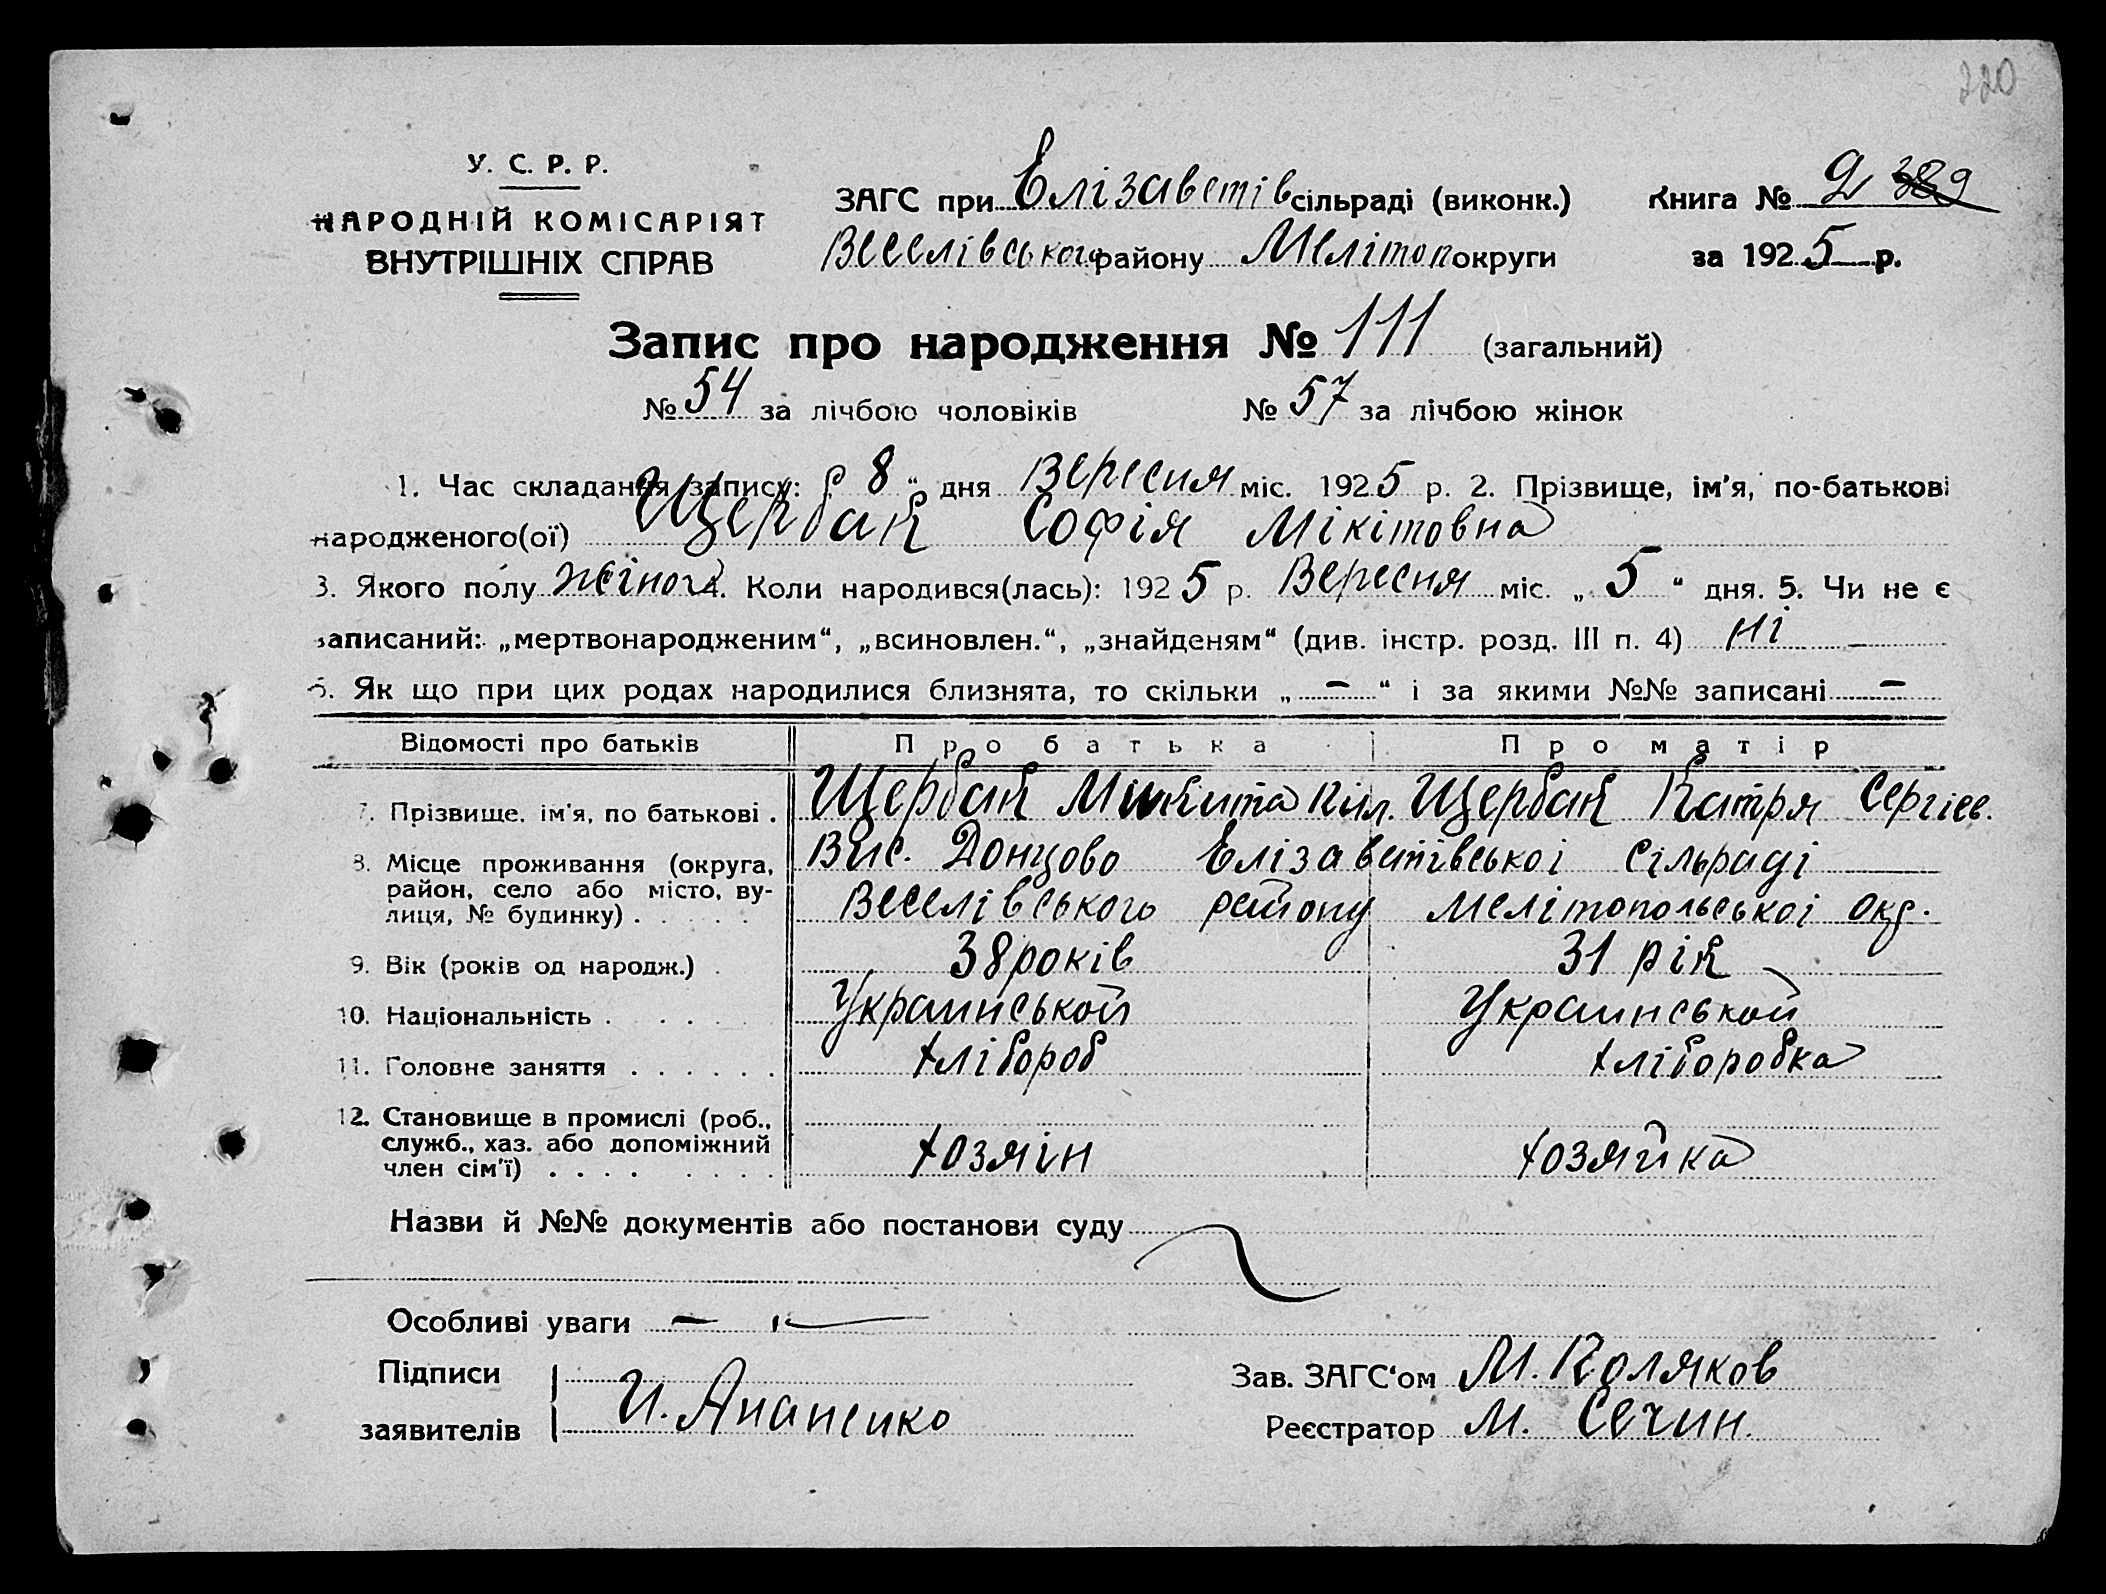 220
У. С. Р. Р.
НАРОДНІЙ КОМІСАРІЯТ
ВНУТРІШНІХ СПРАВ
ЗАГС при Елізаветів сільраді (виконк.)
Веселівського району Мелітоп округи
Книга № 2 389
за 1925 р.
Запис про народження № 111 (загальний)
№ 54 за лічбою чоловіків № 57 за лічбою жінок
1. Час складання запису: „ 8 “ дня Вересня міс. 1925 р. 2. Прізвище, ім'я, по-батькові
народженого(ої) Щербак Софія Мікітовна
3. Якого полу жіног 4. Коли народився(лась): 1925 р. Вересня міс. „ 5 “ дня. 5. Чи не є
записаний: „мертвонародженим“, „всиновлен.“, „знайденям“ (див. інстр. розд. III п. 4) ні —
6. Як що при цих родах народилися близнята, то скільки „ — “ і за якими №№ записані —
Відомості про батьків Про батька Про матір
7. Прізвище, ім'я, по батькові . Щербак Микита Кил. Щербак Катря Сергієв.
8. Місце проживання (округа, район, село або місто, ву-
лиця, № будинку) . . . . . Вис. Донцово Елізаветівськоі сільраді
Веселівського району Мелітопольськоі окр.
9. Вік (років од народж.) . 38 років 31 рік
10. Національність . . . . . Украинськой Украинськой
11. Головне заняття . . . . . . хлібороб хліборобка
12. Становище в промислі (роб.,
служб., хаз. або допоміжний
член сім'ї) . . . . . . . . хозяін хозяйка
Назви й №№ документів або постанови суду
Особливі уваги —
Підписи
заявителів И. Ананенко
Зав. ЗАГС'ом М. Коляков
Реєстратор М. Сечин.